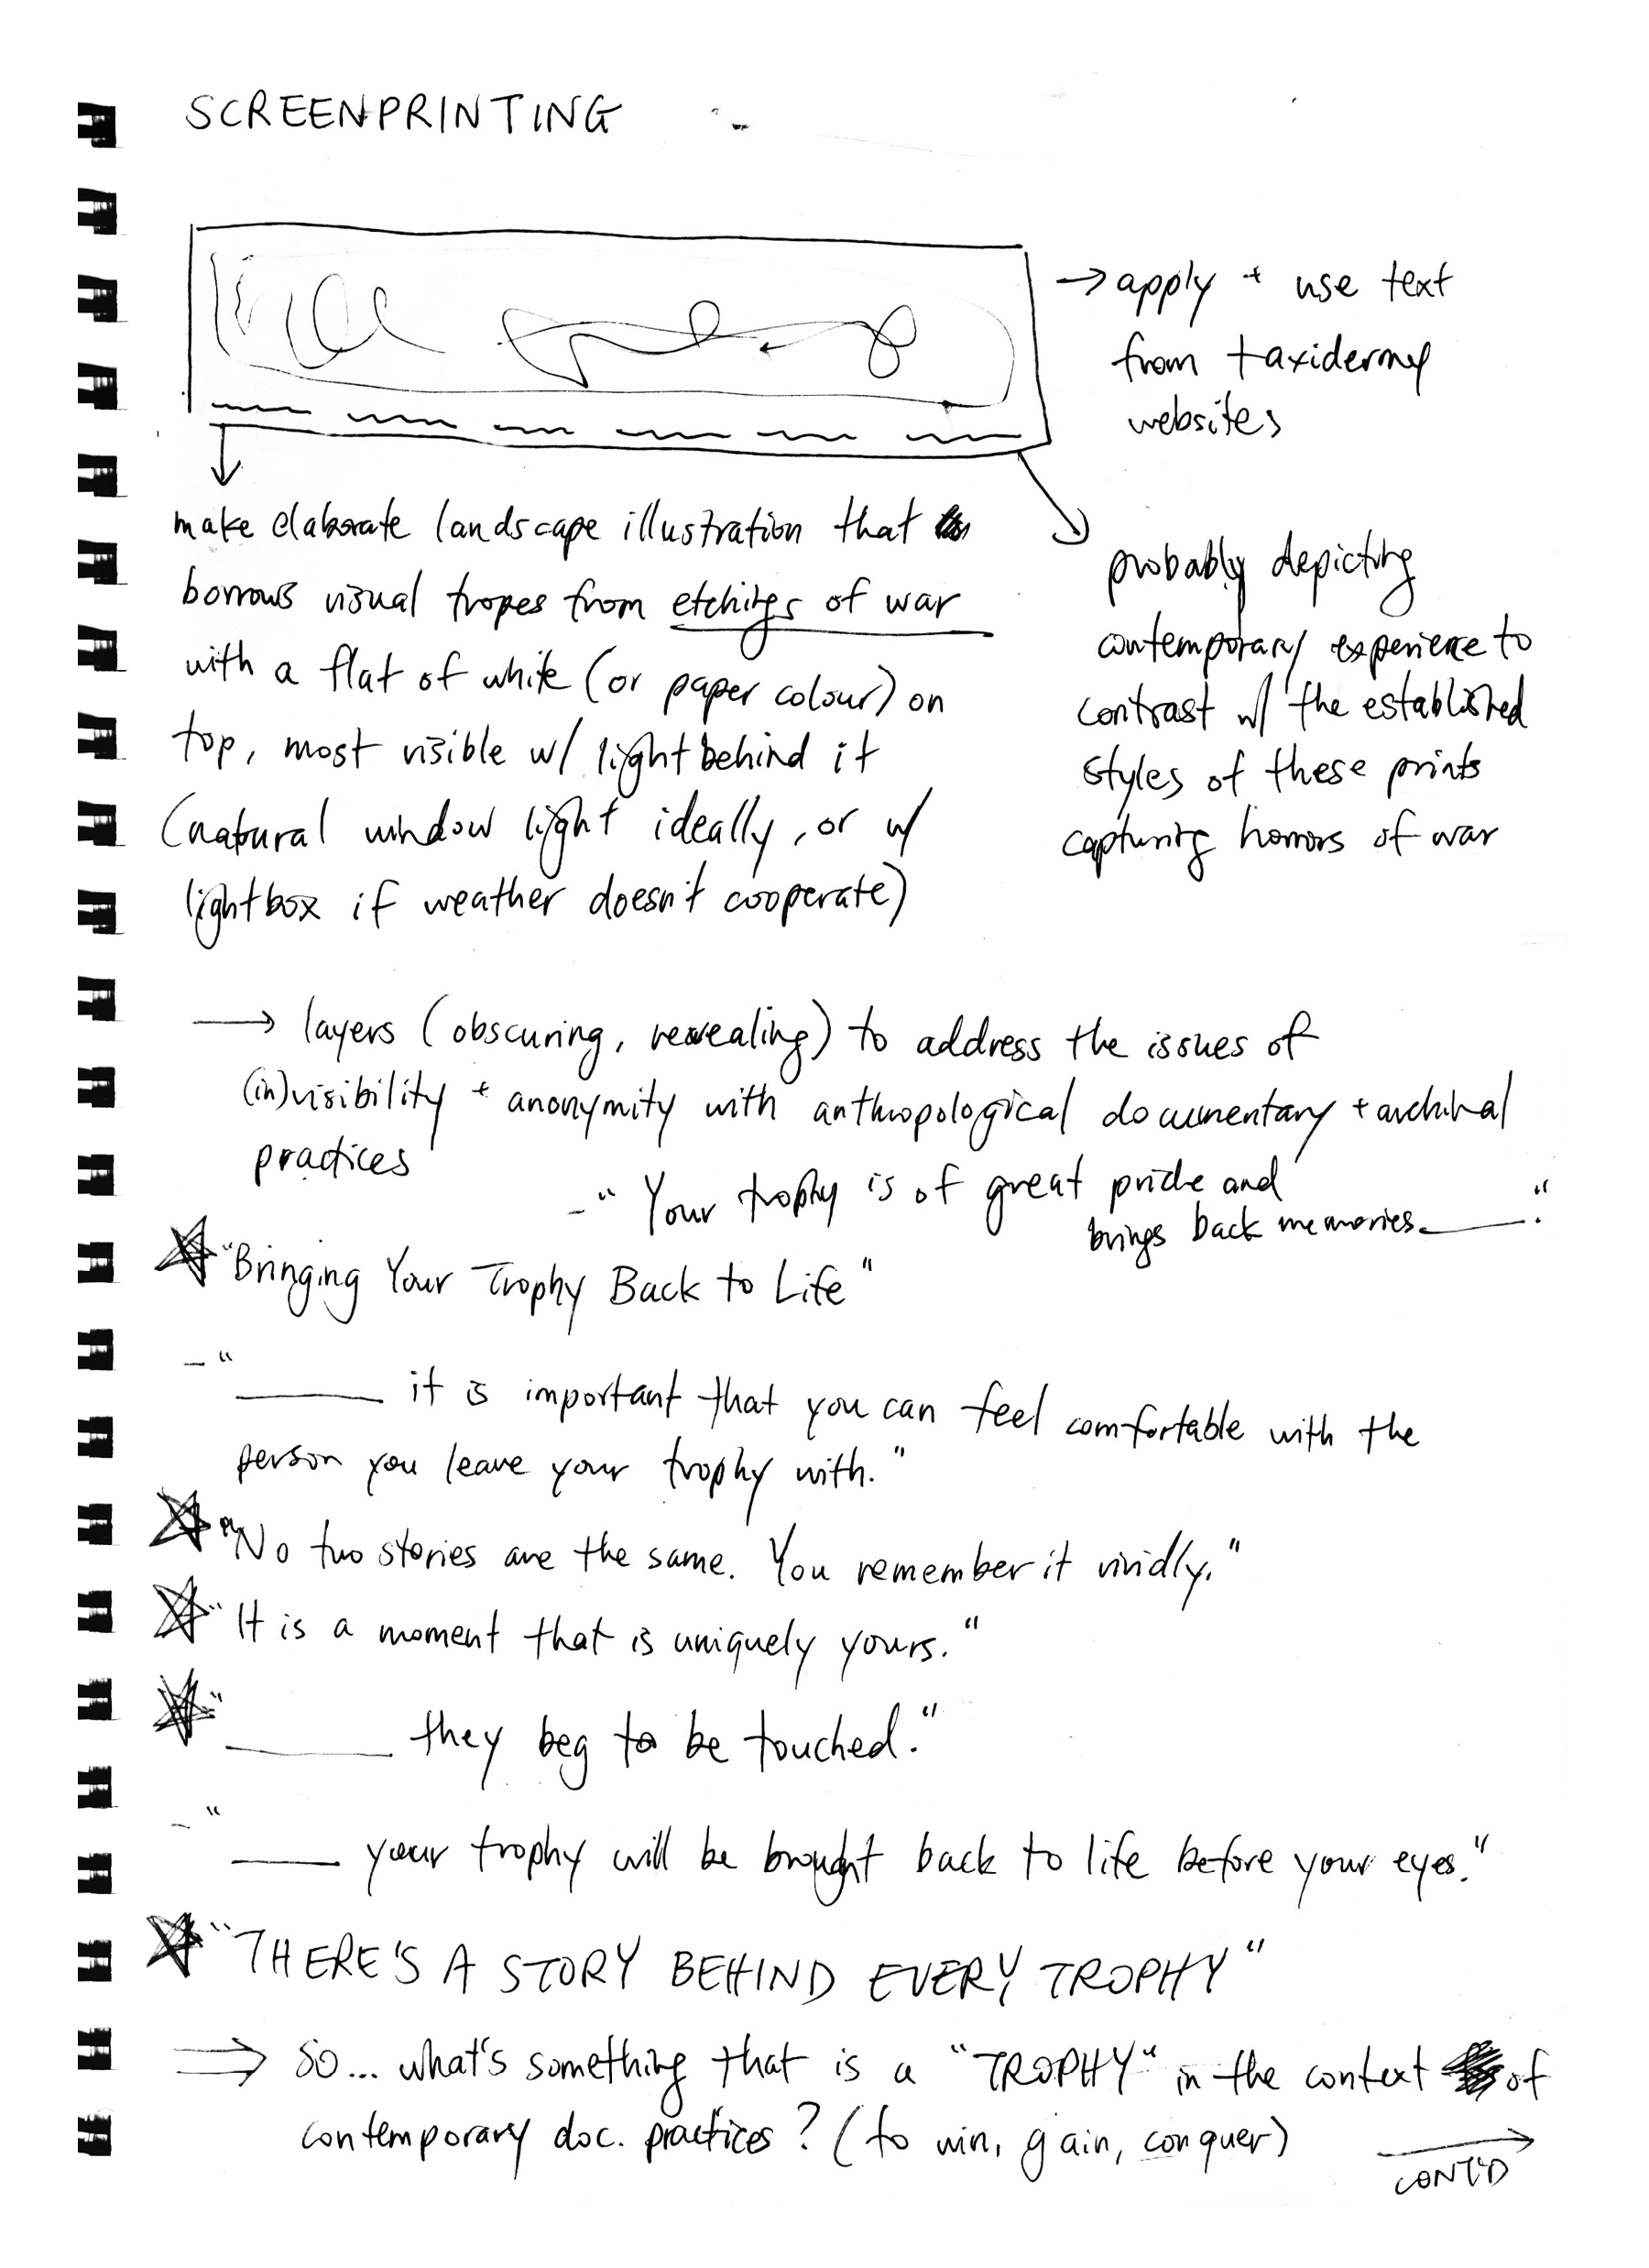 SCREENPRINTING
→ apply + use text
from taxidermy
websites
make elaborate landscape illustration that
borrows visual tropes from etchings of war
with a flat of white (or paper colour) on
top, most visible w/ light behind it
(natural window light ideally, or w/
lightbox if weather doesn't cooperate)
probably depicting
contemporary experience to
contrast w/ the established
styles of these prints
capturing horrors of war
→ layers (obscuring, revealing) to address the issues of
(in)visibility + anonymity with anthropological documentary + archival
practices
- "Your trophy is of great pride and
brings back memories ____."
☆ "Bringing Your Trophy Back to Life"
- "____ it is important that you can feel comfortable with the
person you leave your trophy with."
☆ "No two stories are the same. You remember it vividly."
☆ "It is a moment that is uniquely yours."
☆ "____ they beg to be touched."
- "____ your trophy will be brought back to life before your eyes."
☆ "THERE'S A STORY BEHIND EVERY TROPHY"
⇒ so... what's something that is a "TROPHY" in the context of
contemporary doc. practices? (to win, gain, conquer)
CONT'D